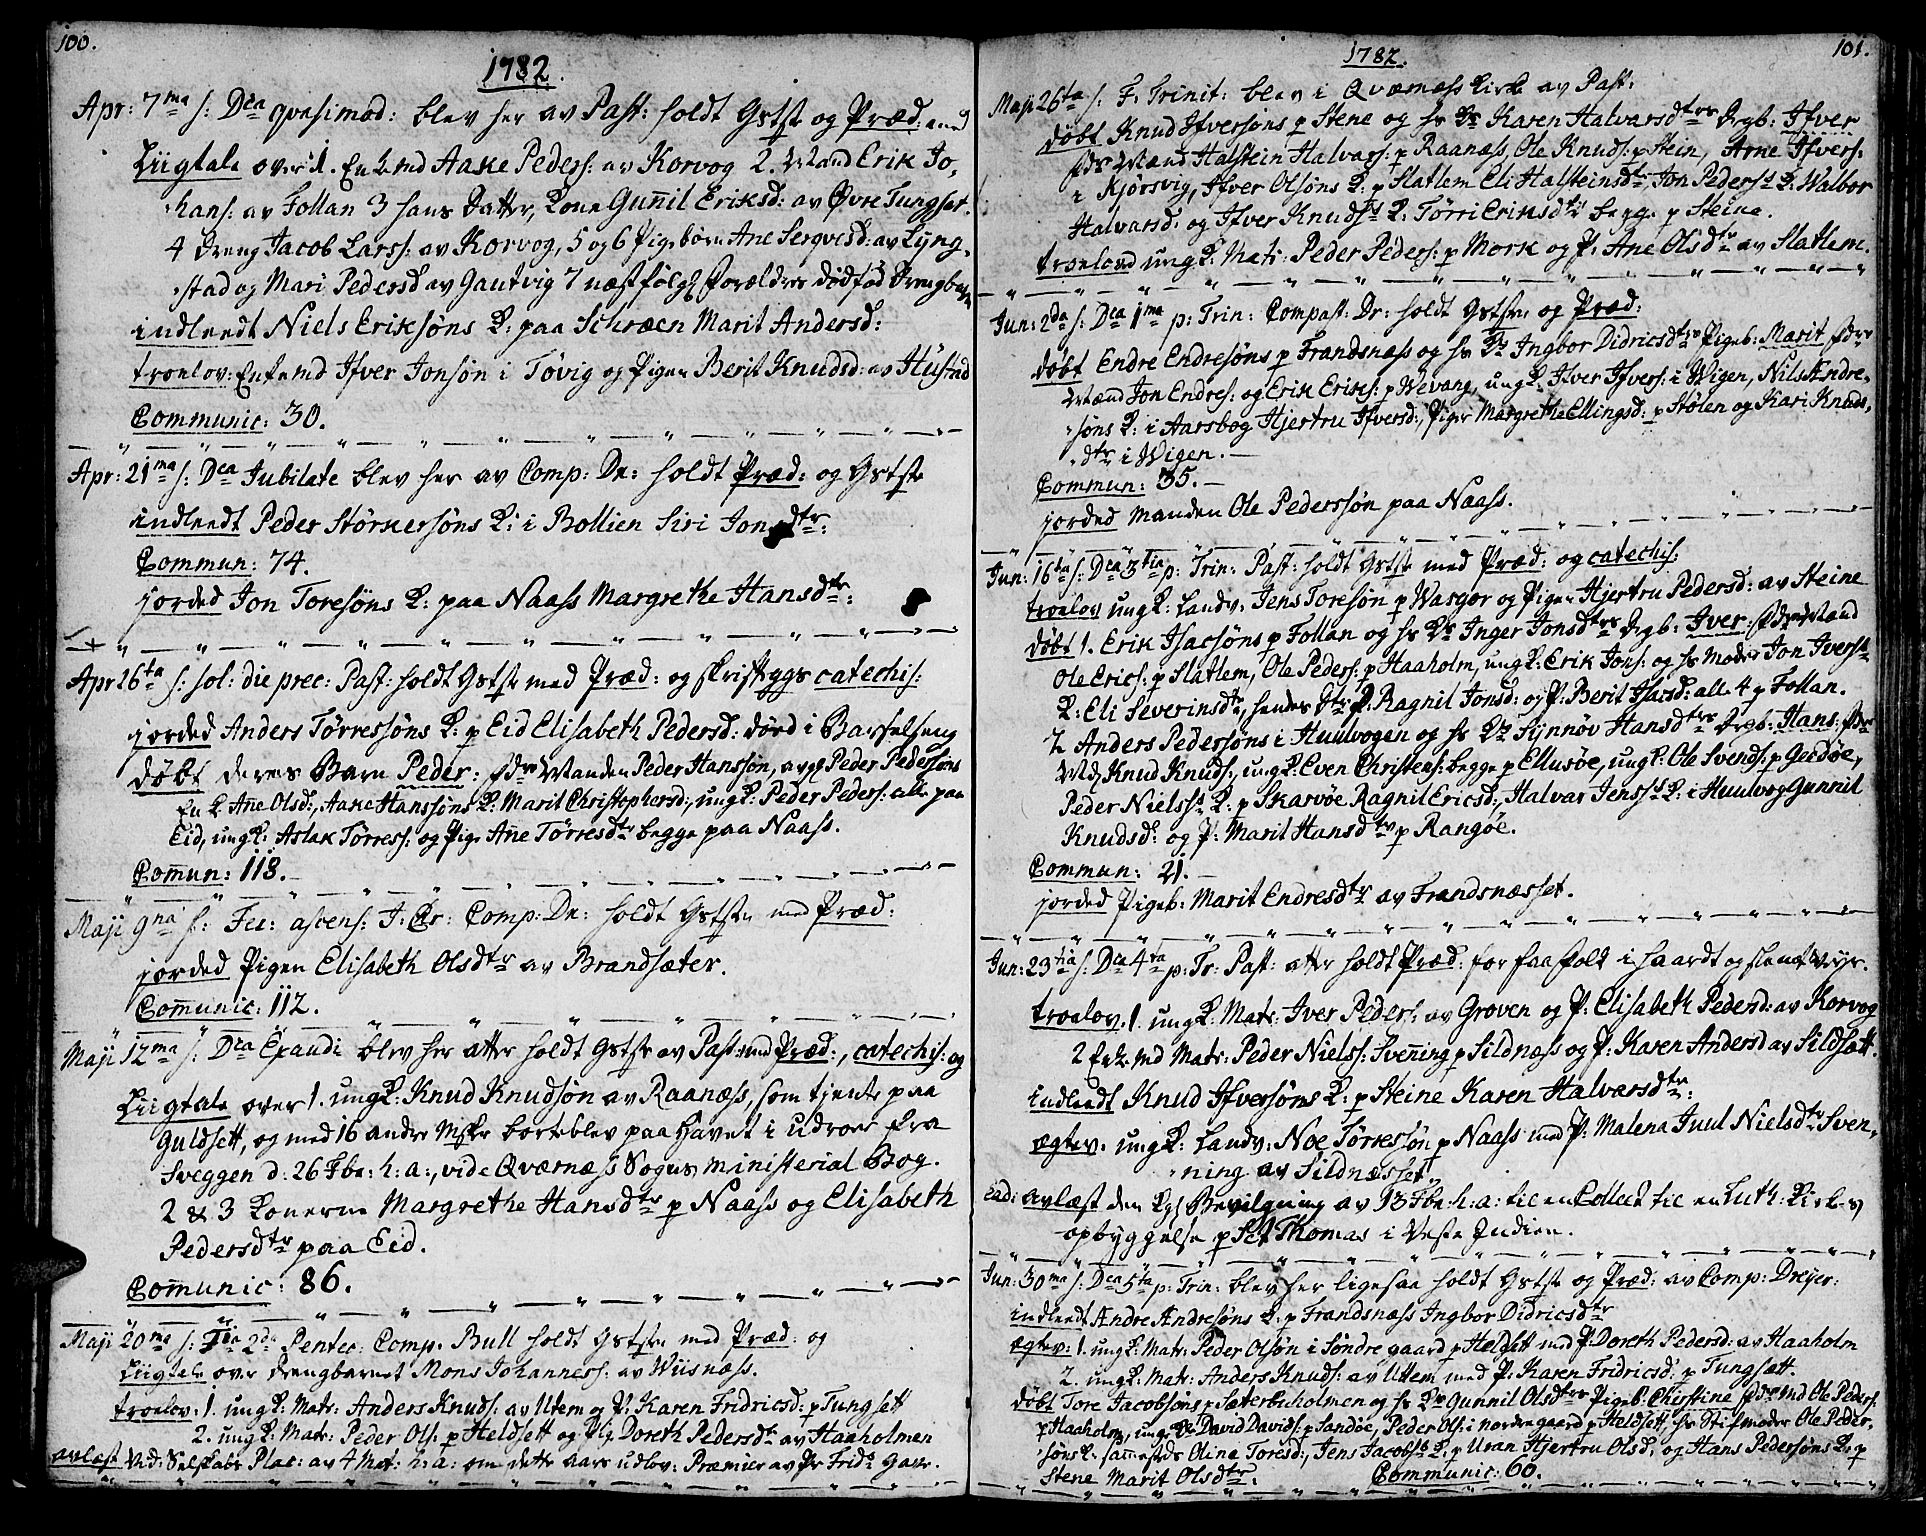 100.
1782.
Apr: 7ma s: Dca qvasimod: blev her av Past: holdt Gstst og Præd: med
Liigtale over 1. Enkemd Aake Peders: av Korvog 2. Mand Erik Jo,
hans: av Follan 3 hans Datter, Kone Gunnil Eriksd: av Øvre Tungset.
4 Dreng Jacob Larss: av Korvog, 5 og 6 Pigebørn Ane Sergvesd: av Lyng,
stad og Mari Pedersd av Gautvig 7 næstfølg Forældres dødfød Drengbarn
indleedt Niels Eriksøns K: paa Schræen Marit Andersd:
troelov: Enkemd Ifver Jonsøn i Tøvig og Pigen Berit Knudsd: av Hustad
Communic: 30.
Apr: 21ma s: Dca Jubilate blev her av Comp: Dr: holdt Præd: og Gstste
indleedt Peder Størkersøns K: i Bollien Siri Jonsdtr:
Commun: 74.
jorded Jon Toresøns K: paa Naass Margrethe Hansdtr:
Apr 26ta s: sol: die prec: Past: holdt Gstste med Præd: og skriftygs catechis:
jorded Anders Tørressøns K: p Eid Elisabeth Pedersd: død i Barselseng
døbt deres Barn Peder: fdre Manden Peder Hanssøn, avg Peder Pedersøns
Enk Ane Olsd:, Aake Hanssøns K: Marit Christophersd:, ungk: Peder Peders: alle paa
Eid, ungk: Aslak Tørress: og Pig: Ane Tørresdtr begge paa Naass.
Comun: 118.
Maji 9na s: Fer: ascens: J: Cr: Comp: Dr: holdt Gstste med Præd:
jorded Pigen Elisabeth Olsdtr av Brandsæter.
Comunic: 112.
Maji 12ma s: Dca Exaudi blev her atter holdt Gstste av Past: med Præd:, catechis: og
Liigtale over 1. ungk: Knud Knudsøn av Raanæss, som tjente paa
Guldsett, og med 16 andre Msker borteblev paa Havet i udroer fra
Sveggen d: 26 Fbr: h: a:, vide Qværnæss Sogns ministerial Bog.
2 & 3 Konerne Margrethe Hansdtr p Naass og Elisabeth
Pedersdtr paa Eid.
Comunic: 86.
Maji 20ma s: Fer 2da Pentec: Comp. Bull holdt Gstste med Præd: og
Liigtale over Drengbarnet Mons Johanness: av Wiisnæss.
troelov: 1. ungk: Matr: Anders Knuds: av Utem og P: Karen Fridricsd: p Tungsett
2. ungk: Matr: Peder Ols: p Heldsett og Pig Doreth Pedersdtr av Haaholmen
avlæst Vid: Selskabs Plac: av 4 Mat: h: a: om dette aars udlov: Præmier av Pr: Frids Gave.
1782.
101.
Maji 26ta s: F: Trinit: blev i Qværnæss Kirke av Past:
døbt Knud Ifversøns p Stene og hs Ks Karen Halvarsdtrs Drgb: Ifver
fdre Mænd Halstein Halvars: p Raanæss, Ole Knuds: p Stein, Arne Ifvers:
i Kjørsvig, Ifver Olsøns K: p Slatlem Eli Halsteinsdtr, Jon Peders K: Walbor
Halvarsd: og Ifver Knuds K: Tørri Eriksdtr begge p Steine.
troelovd ungk: Matr: Peder Peders: p Mork og P: Ane Olsdtr av Slatlem.
Jun: 2da s: Dca 1ma p: Trin: Compast: Dr: holdt Gstste og Præd:
døbt Endre Endresøns p Frandsnæss og hs Ks Ingbor Didricsdtrs Pigeb: Marit fdre
Mænd Jon Endres: og Erik Eriks: p Wevang, ungk: Ifver Ifvers: i Wigen, Nils Andre,
søns K: i Aarsbog Hjertru Ifversd:, Piger Margrethe Ellingsd: p Stølen og Kari Knuds,
dtr i Wigen.
Commun: 35.
jorded Manden Ole Pederssøn paa Naass.
Jun: 16ta s: Dca 3tia p: Trin: Past: holdt Gstste med Præd: og catechis:
troelov ungk: Landv. Jens Toresøn p Wasgor og Pigen Hjertru Pedersd: av Steine
døbt 1. Erik Isacsøns p Follan og hs Ks Inger Jonsdtrs Drgb: Iver fdre Mand
Ole Erics: p Slatlem, Ole Peders: p Haaholm, ungk: Erik Jons: og hs Moder Jon Ivers
K: Eli Severinsdtr, hendes Str P: Ragnil Jonsd: og P: Berit Isacsd: alle 4 p Follan.
2 Anders Pedersøns i Huulvogen og hs Ks Synnøv Hansdtrs Drgb: Hans: fdre
Md Knud Knuds:, ungk: Even Christens: begge p Ellusøe, ungk: Ole Svends: p Geidøe,
Peder Nielss K: p Skarvøe Ragnil Ericsd:, Halvar Jenss K: i Huulvog Gunnil
Knudsd: og P: Marit Hansdtr p Rangøe.
Commun: 21.
jorded Pigeb: Marit Endresdtr av Frandsnæsset.
Jun: 23tia s: Dca 4ta p: Tr: Past: atter holdt Præd: for faa folk i haardt og slemt Veyr.
troelov. 1. ungk: Matr: Iver Peders: av Groven og P: Elisabeth Pedersd: av Korvog
2 Enk: md Matr: Peder Nielss: Svenning p Sildnæss og P: Karen Andersd av Sildsætt.
indleedt Knud Ifversøns K: p Steine Karen Halvarsdtr:
ægtev: ungk: Landv: Noe Tørresøn p Naass med P: Malena Juul Nielsdtr Sven,
ning av Sildnæsset.
Ead: avlæst den kgl Bevilgning av 13 Fbr: h: a: til en Collect til en Luth. Kirkes
opbyggelse p Sct Thomas i Veste Indien.
Jun: 30ma s: Dca 5ta p: Trin: blev her ligesaa holdt Gstste og Præd: av Comp: Dreyer:
indleedt Andre Andresøns K. p Frandsnæss Ingbor Didricsdtr
ægtev: 1. ungk: Matr: Peder Olsøn i Søndre gaard p Heldsett med P: Doreth Pedersd: av Haaholm
2. ungk: Matr: Anders Knuds: av Utem med P: Karen Fridricsd: p Tungsætt.
døbt Tore Jacobsøns p Sæterbuholmen og hs Ks Gunnil Olsdtrs Pigeb: Christine fdre Md Ole Peders:
p Haaholm, ungk: David Davids: p Sandøe, Peder Ols: i Nordregaard p Heldsett, hs Stifmoder Ole Peder,
søns K: sammesteds Olina Toresd:, Jens Jacobs K: p Uran Hjertru Olsd: og Hans Pedersøns K: p
Stene Marit Olsdtr:
Communic: 60.